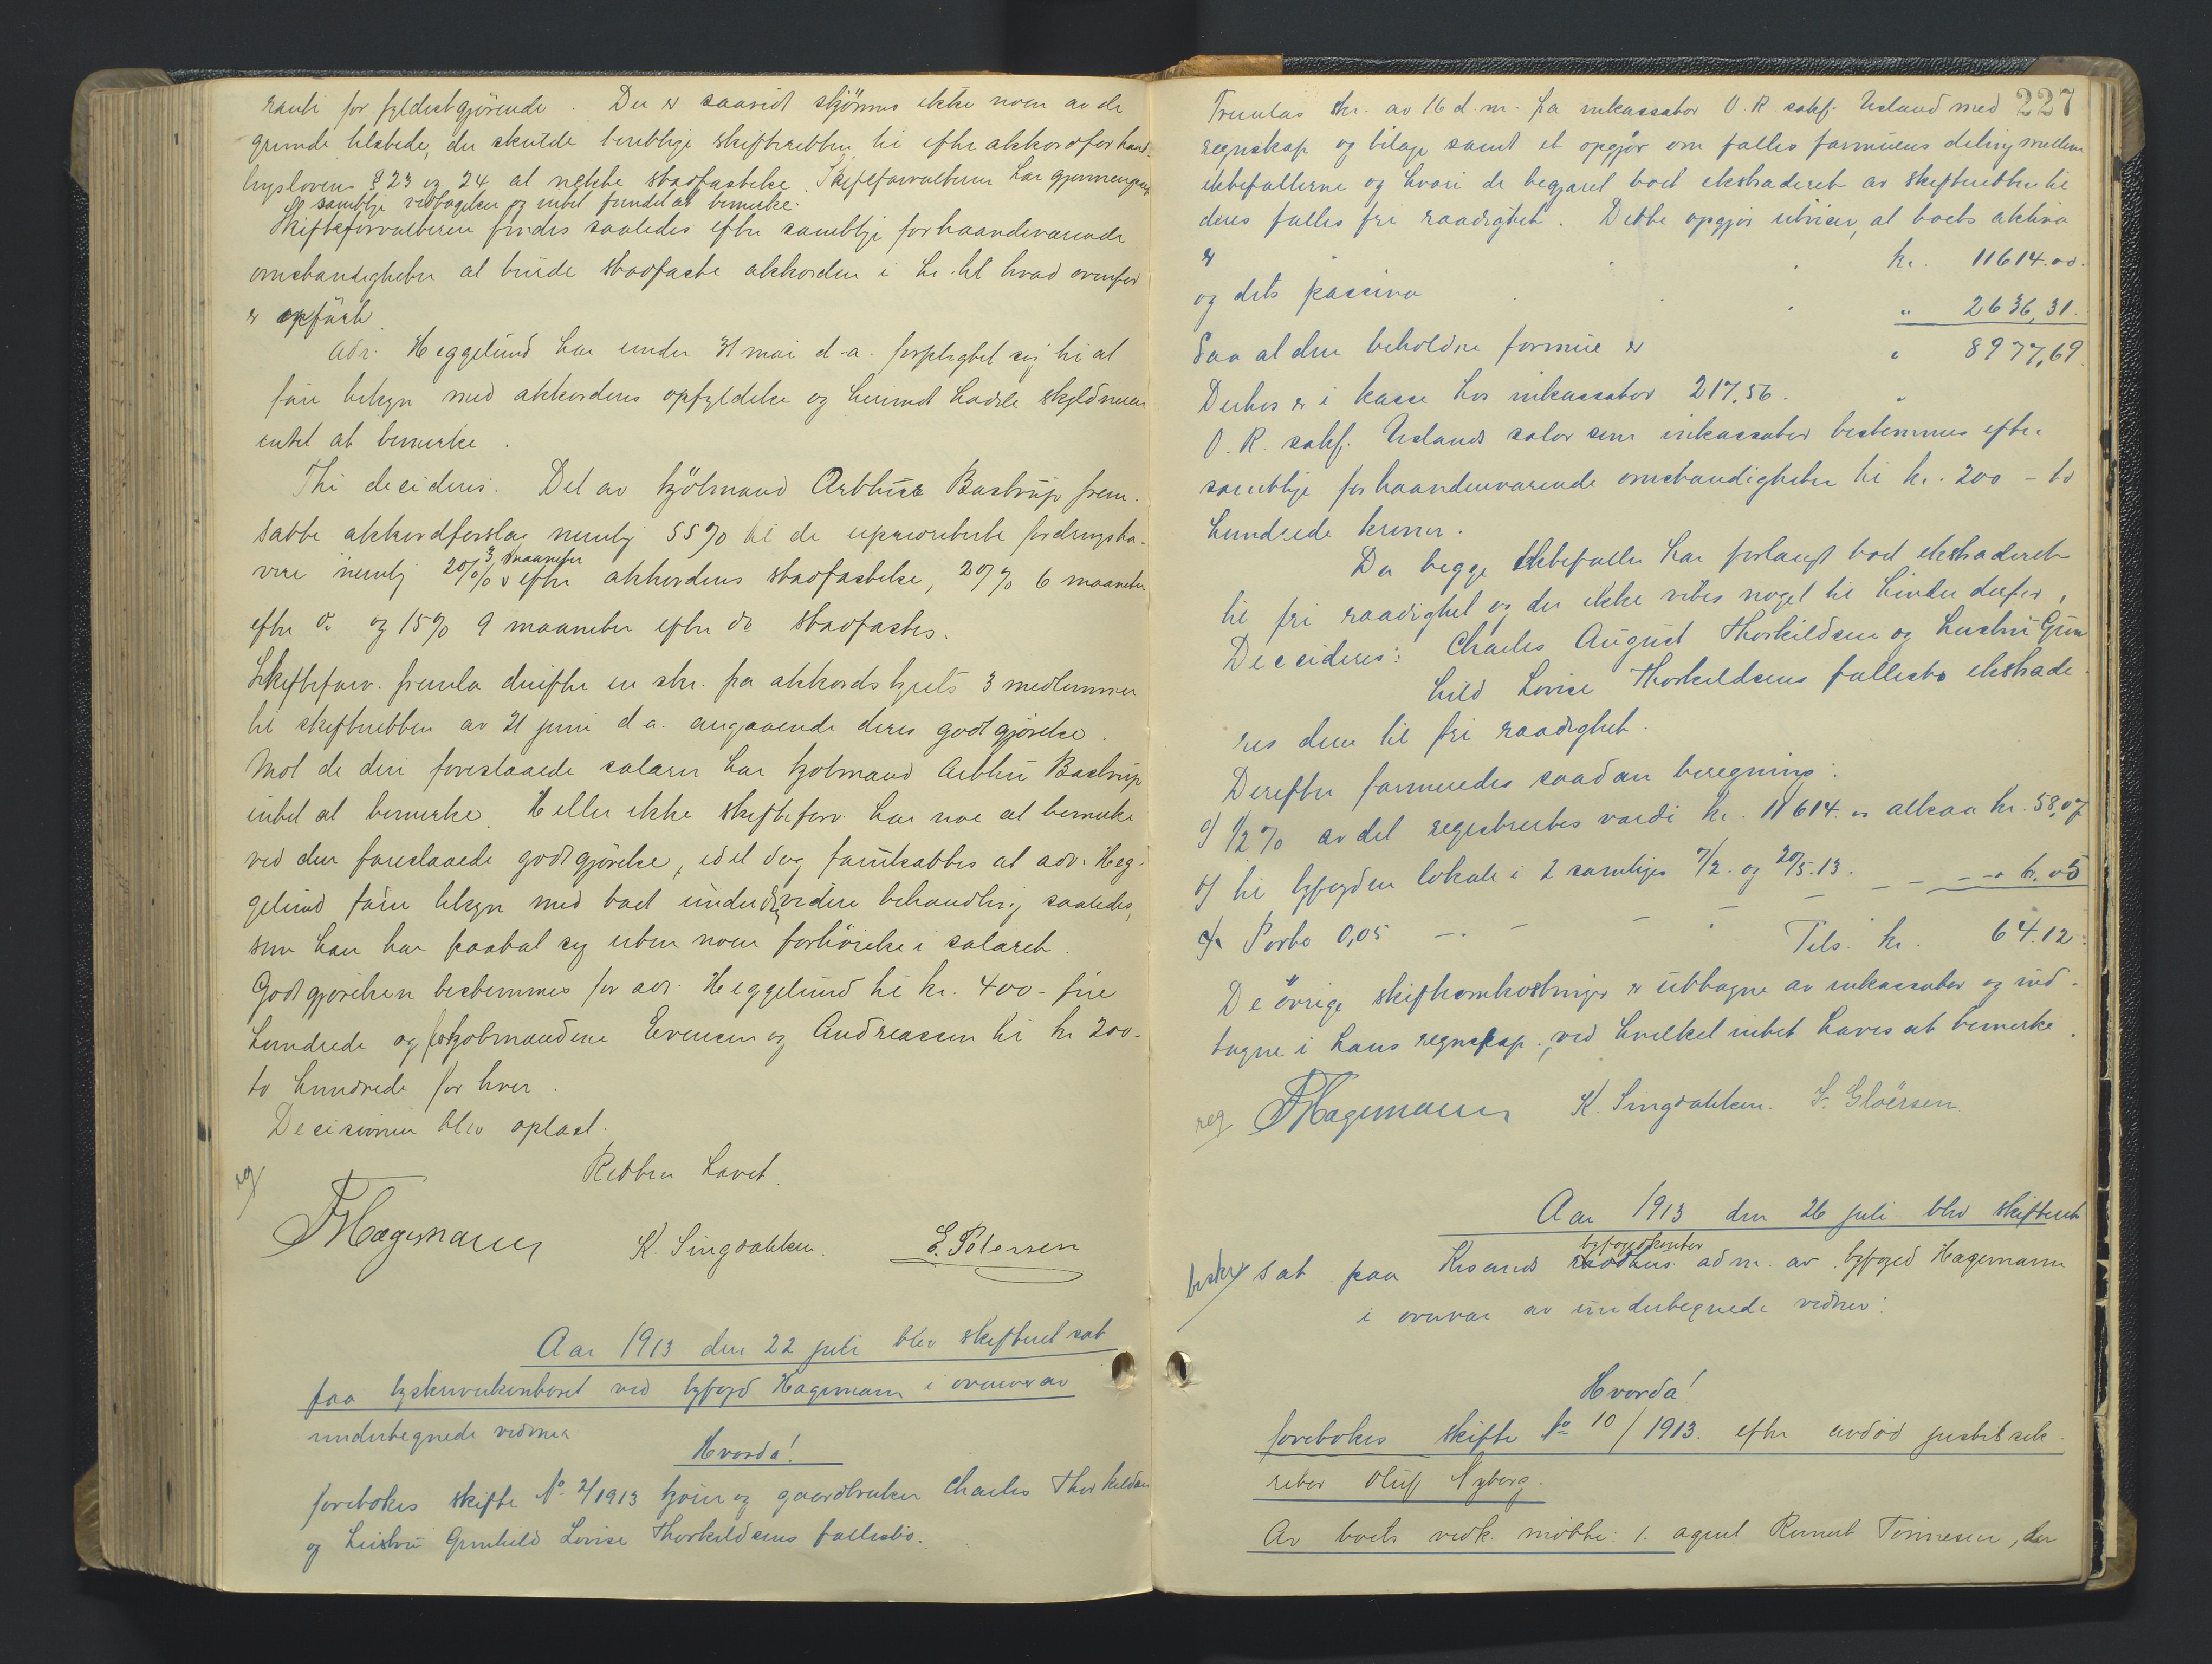 ranti for fyldestgjörende. Der er saavidt skjönnes ikke noen av de
grunde tilstede, der skulde berettige skifteretten til efter akkordforhand-
lingslovens § 23 og 24 at nekte stadfæstelse. Skifteforvalteren har gjennemgaat
samtlige vedtagelser og intet fundet at bemerke.
Skifteforvalteren findes saaledes efter samtlige forhaandenværende
omstændigheter at burde stadfæste akkorden i h. til hvad ovenfor
er opført.
Adv. Heggelund har under 31 mai d.a. forpligtet sig til at
føre tilsyn med akkordens opfyldelse og herimot havde skyldneren
intet at bemerke.
Thi decideres: Det av kjöbmand Arthur Bastrup frem-
satte akkordforslag nemlig 55% til de uprioriterte fordringsha-
vere nemlig 20% 3 maaneder efter akkordens stadfæstelse, 20% 6 maaneder
efter do og 15% 9 maaneder efter do stadfæstes.
Skifteforv. fremla derefter en skr. fra akkordstyrets 3 medlemmer
til skifteretten av 21 juni d.a. angaaende deres godtgjörelse.
Mot de deri foreslaaede salarer har kjøbmand Arthur Bastrup
intet at bemerke. Heller ikke skifteforv. har noe at bemerke
ved den foreslaaede godtgjörelse, idet dog forutsættes at adv. Heg-
gelund fører tilsyn med boet under dets videre behandling saaledes,
som han har paatat sig uten noen forhöielse i salaret.
Godtgjörelsen bestemmes for adv. Heggelund til kr. 400 - fire
hundrede og for kjøbmændene Evensen og Andreassen til kr 200 -
to hundrede for hver.
Decisionen blev oplæst.
Retten hævet.
reg
Hagemann K. Singdahlsen. E. Petersen
Aar 1913 den 22 juli blev skifteret sat
paa byskriverkontoret ved byfoged Hagemann i overvær av
undertegnede vidner
Hvorda!
foretokes skifte No 2/1913 kjøm. og gaardbruker Charles Thorkildsen
og hustru Gunhild Lovise Thorkildsens fællesbo.
227
Fremlas skr. av 16 d.m. fra inkassator O.R. sakf. Usland med
regnskap og bilage samt et opgjør om fælles formuens deling mellem
ektefællerne og hvori de begjæret boet ekstraderet av skifteretten til
deres fælles fri raadighet. Dette opgjør utviser, at boets aktiva
er kr. 11614.00.
og dets passiva " 2636,31.
Saa at den beholdne formue er " 8977,69
Derhos er i kasse hos inkassator 217,56.
O.R. sakf. Uslands salær som inkassator bestemmes efter
samtlige forhaandenværende omstændigheter til kr. 200 - to
hundrede kroner.
Da begge ektefæller har forlangt boet ekstraderet
til fri raadighet og der ikke vites noget til hinder derfor,
Decideres: Charles August Thorkildsen og hustru Gun
hild Lovise Thorkildsens fællesbo ekstrade
res dem til fri raadighet.
Derefter formeredes saadan beregning:
a) 1/2% av det registrertes værdi kr. 11614.00 altsaa kr. 58,07
b) til byfogden lokale i 2 samlinger 7/2. og 20/5.13. - - - 6.00
c) Porto 0,05 - - - 0,05
Tils. kr. 64.12
De övrige skifteomkostninger er uttagne av inkassator og ind-
tagne i hans regnskap, ved hvilket intet haves at bemerke.
reg Hagemann K. Singdahlsen. F. Gløersen
Aar 1913 den 26 juli blev skifteret
beskr sat paa Krsands byfogedkontor raadhus adm. av byfoged Hagemann
i overvær av undertegnede vidner:
Hvorda!
foretokes skifte No 10/1913. efter avdød justitssek-
retær Oluf Nyborg.
Av boets vedk. møtte: 1. agent Reinert Tönnesen, der